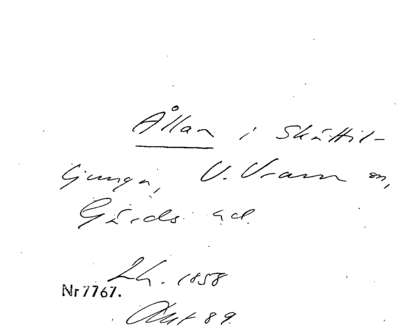 Ållan i Skättil-
ljunga, V. Vram sn,
Gärds hd.
Lh. 1858
Nr 7767.
Akt 89.